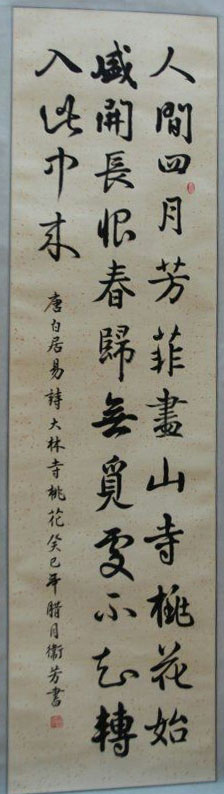 人間四月芳菲盡山寺桃花始
盛開長恨春歸無覓處不知轉
入此中來
唐白居易詩大林寺桃花癸巳年腊月衛芳書